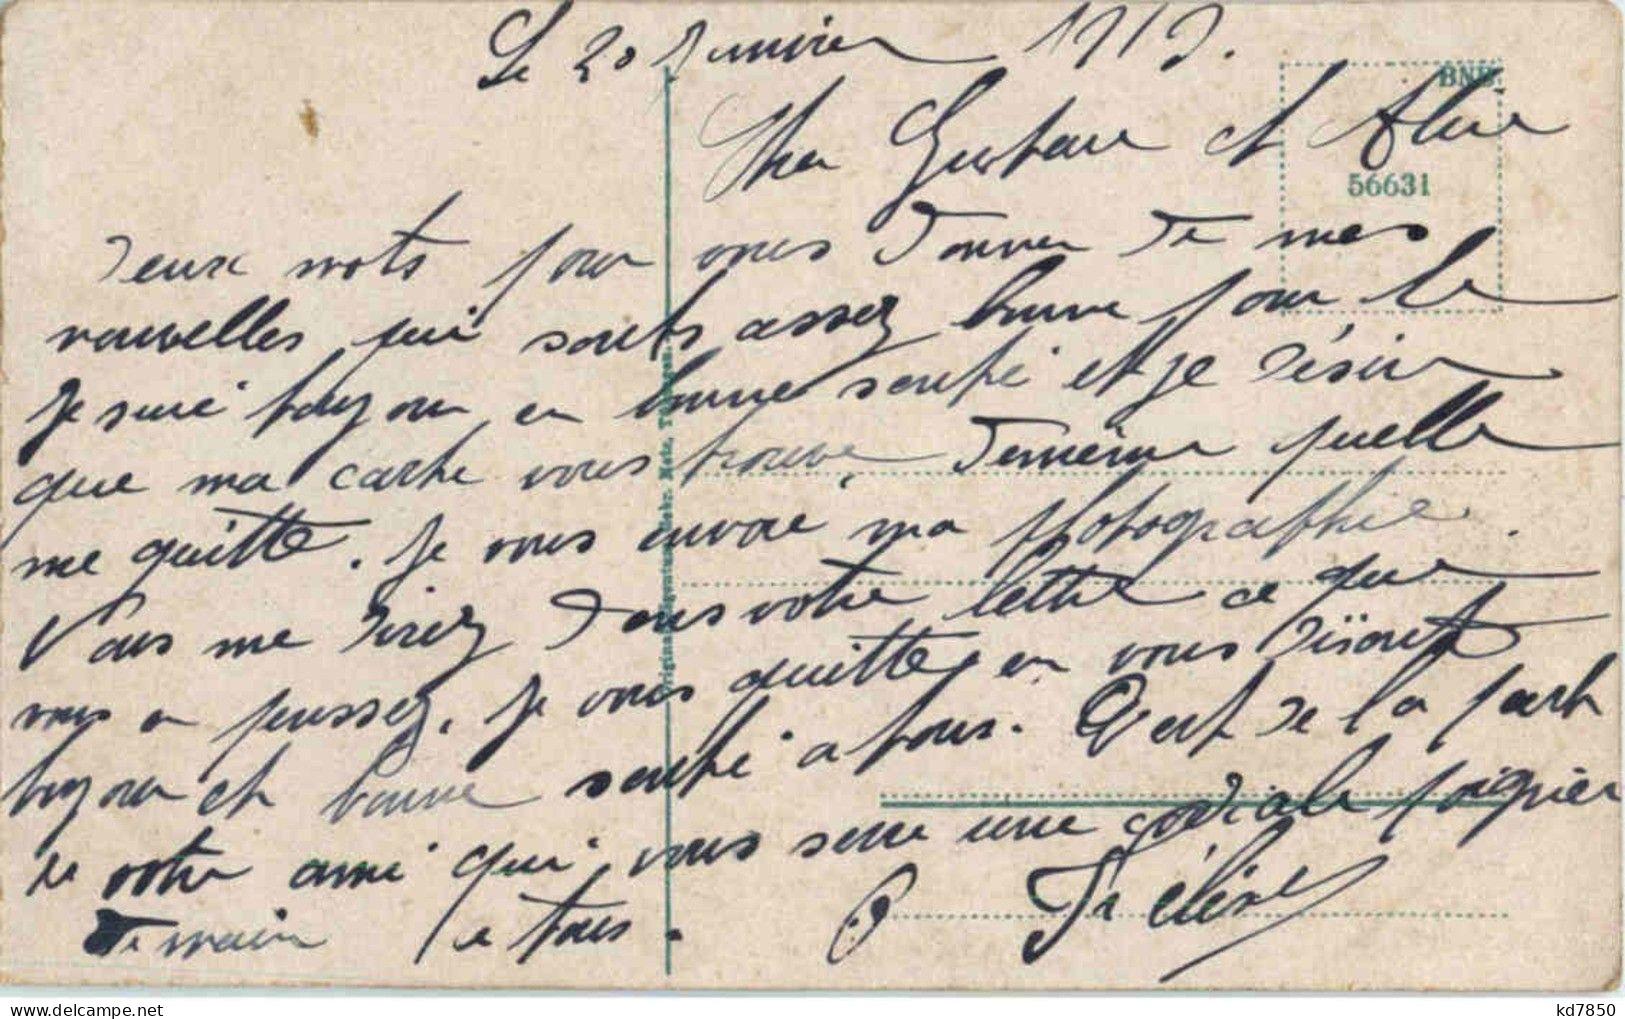 Le 20 Janvier 1919.
BNK
Cher Gustave et
56631
deux mots pour vous donner de mes
nouvelles qui sonts assez bonne pour le
Je suis toujour en bonne santé et je désire
que ma carte vous trouve demême quelle
me quitte. Je vous envoie ma photographie.
Vous me direz dans votre lettre ce que
vous en penssez. Je vous quitte en vous disant
toujour et bonne santé a tous. C'est de la part
de votre ami qui vous serre une cordiale poignier
de main a tous.